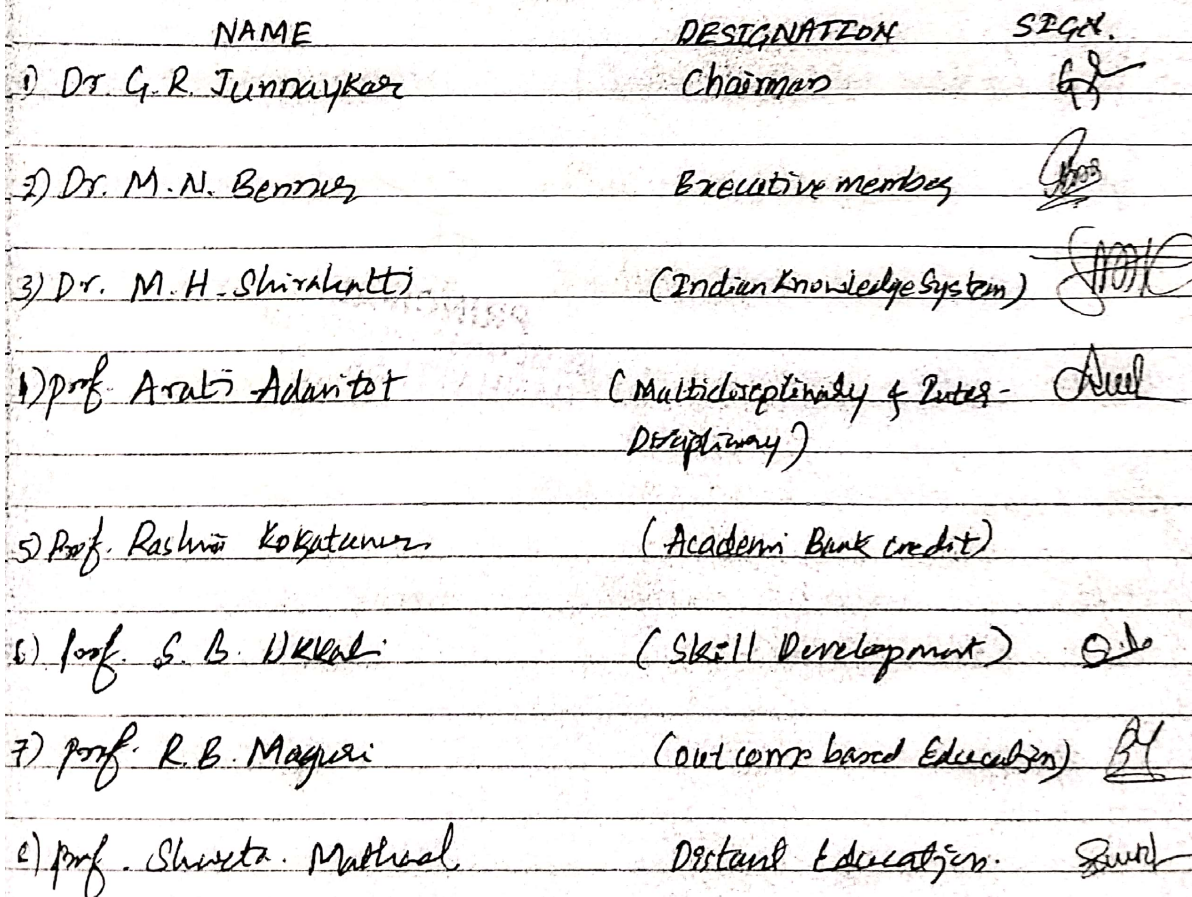 NAME DESIGNATION SIGN.
1) Dr. G. R. Junnaykar Chairman
2) Dr. M. N. Bennur Executive member
3) Dr. M. H. Shirahatti (Indian Knowledge System)
4) Prof. Arati (Multidisciplinary & Inter-
Disciplinary)
5) Prof. Rashmi (Academi Bank credit)
6) Prof. S. B. Ukkali (Skill Development)
7) Prof. R. B. Maguri (outcome based Education)
8) Prof. Shweta. Distant Education.